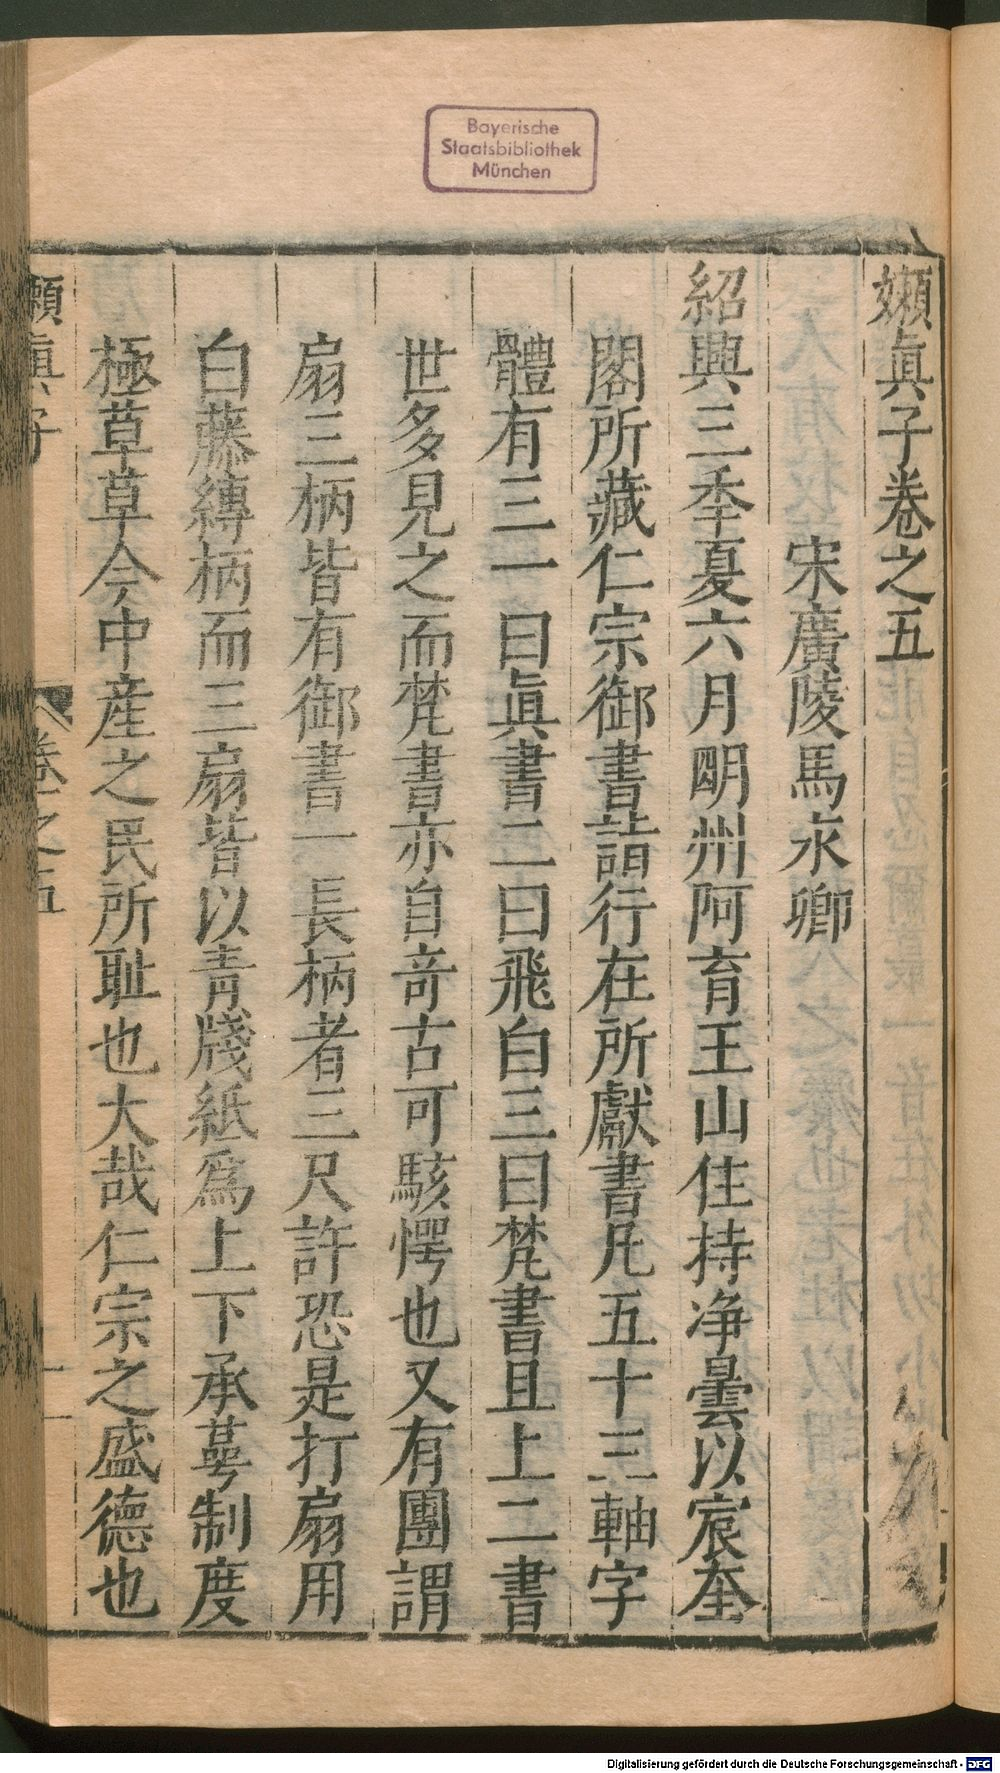 Bayerische
Staatsbibliothek
München
嬾眞子卷之五
宋廣陵馬永卿
紹興三季夏六月朙州阿育王山住持净曇以宸奎
閣所藏仁宗御書詣行在所獻書凡五十三軸字
體有三一曰眞書二曰飛白三曰梵書且上二書
世多見之而梵書亦自奇古可駭愕也又有團謂
扇三柄皆有御書一長柄者三尺許恐是打扇用
白藤縳柄而三扇皆以青牋紙爲上下承蕚制度
極草草今中産之民所耻也大哉仁宗之盛德也
嬾眞子
卷之五
一
Digitalisierung gefördert durch die Deutsche Forschungsgemeinschaft - DFG